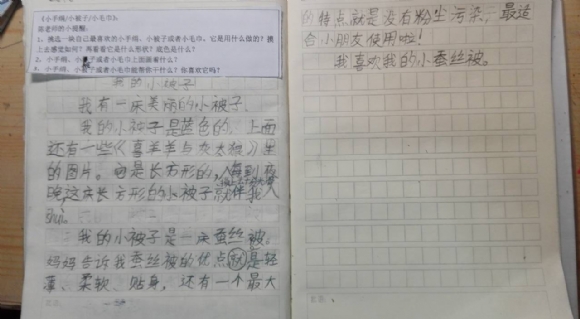 《小手绢/小被子/小毛巾》:
1、挑选一块自己最喜欢的小手绢、小被子或者小毛巾。它是用什么做的？摸
上去感觉如何？再看看它是什么形状？底色是什么？
2、小手绢、小被子或者小毛巾上面画着什么？
3、小手绢、小被子或者小毛巾能帮你干什么？你喜欢它吗？
我的小被子
我有一床美丽的小被子。
我的小被子是蓝色的，上面
还有一些《喜羊羊与灰太狼》里
的图片。它是长方形的，每到夜
晚这床长方形的小被子就伴我入
我的小被子是一床蚕丝被。
妈妈告诉我蚕丝被的优点就是轻
薄、柔软、贴身，还有一个最大
的特点就是没有粉尘污染，最适
合小朋友使用啦！
我喜欢我的小蚕丝被。